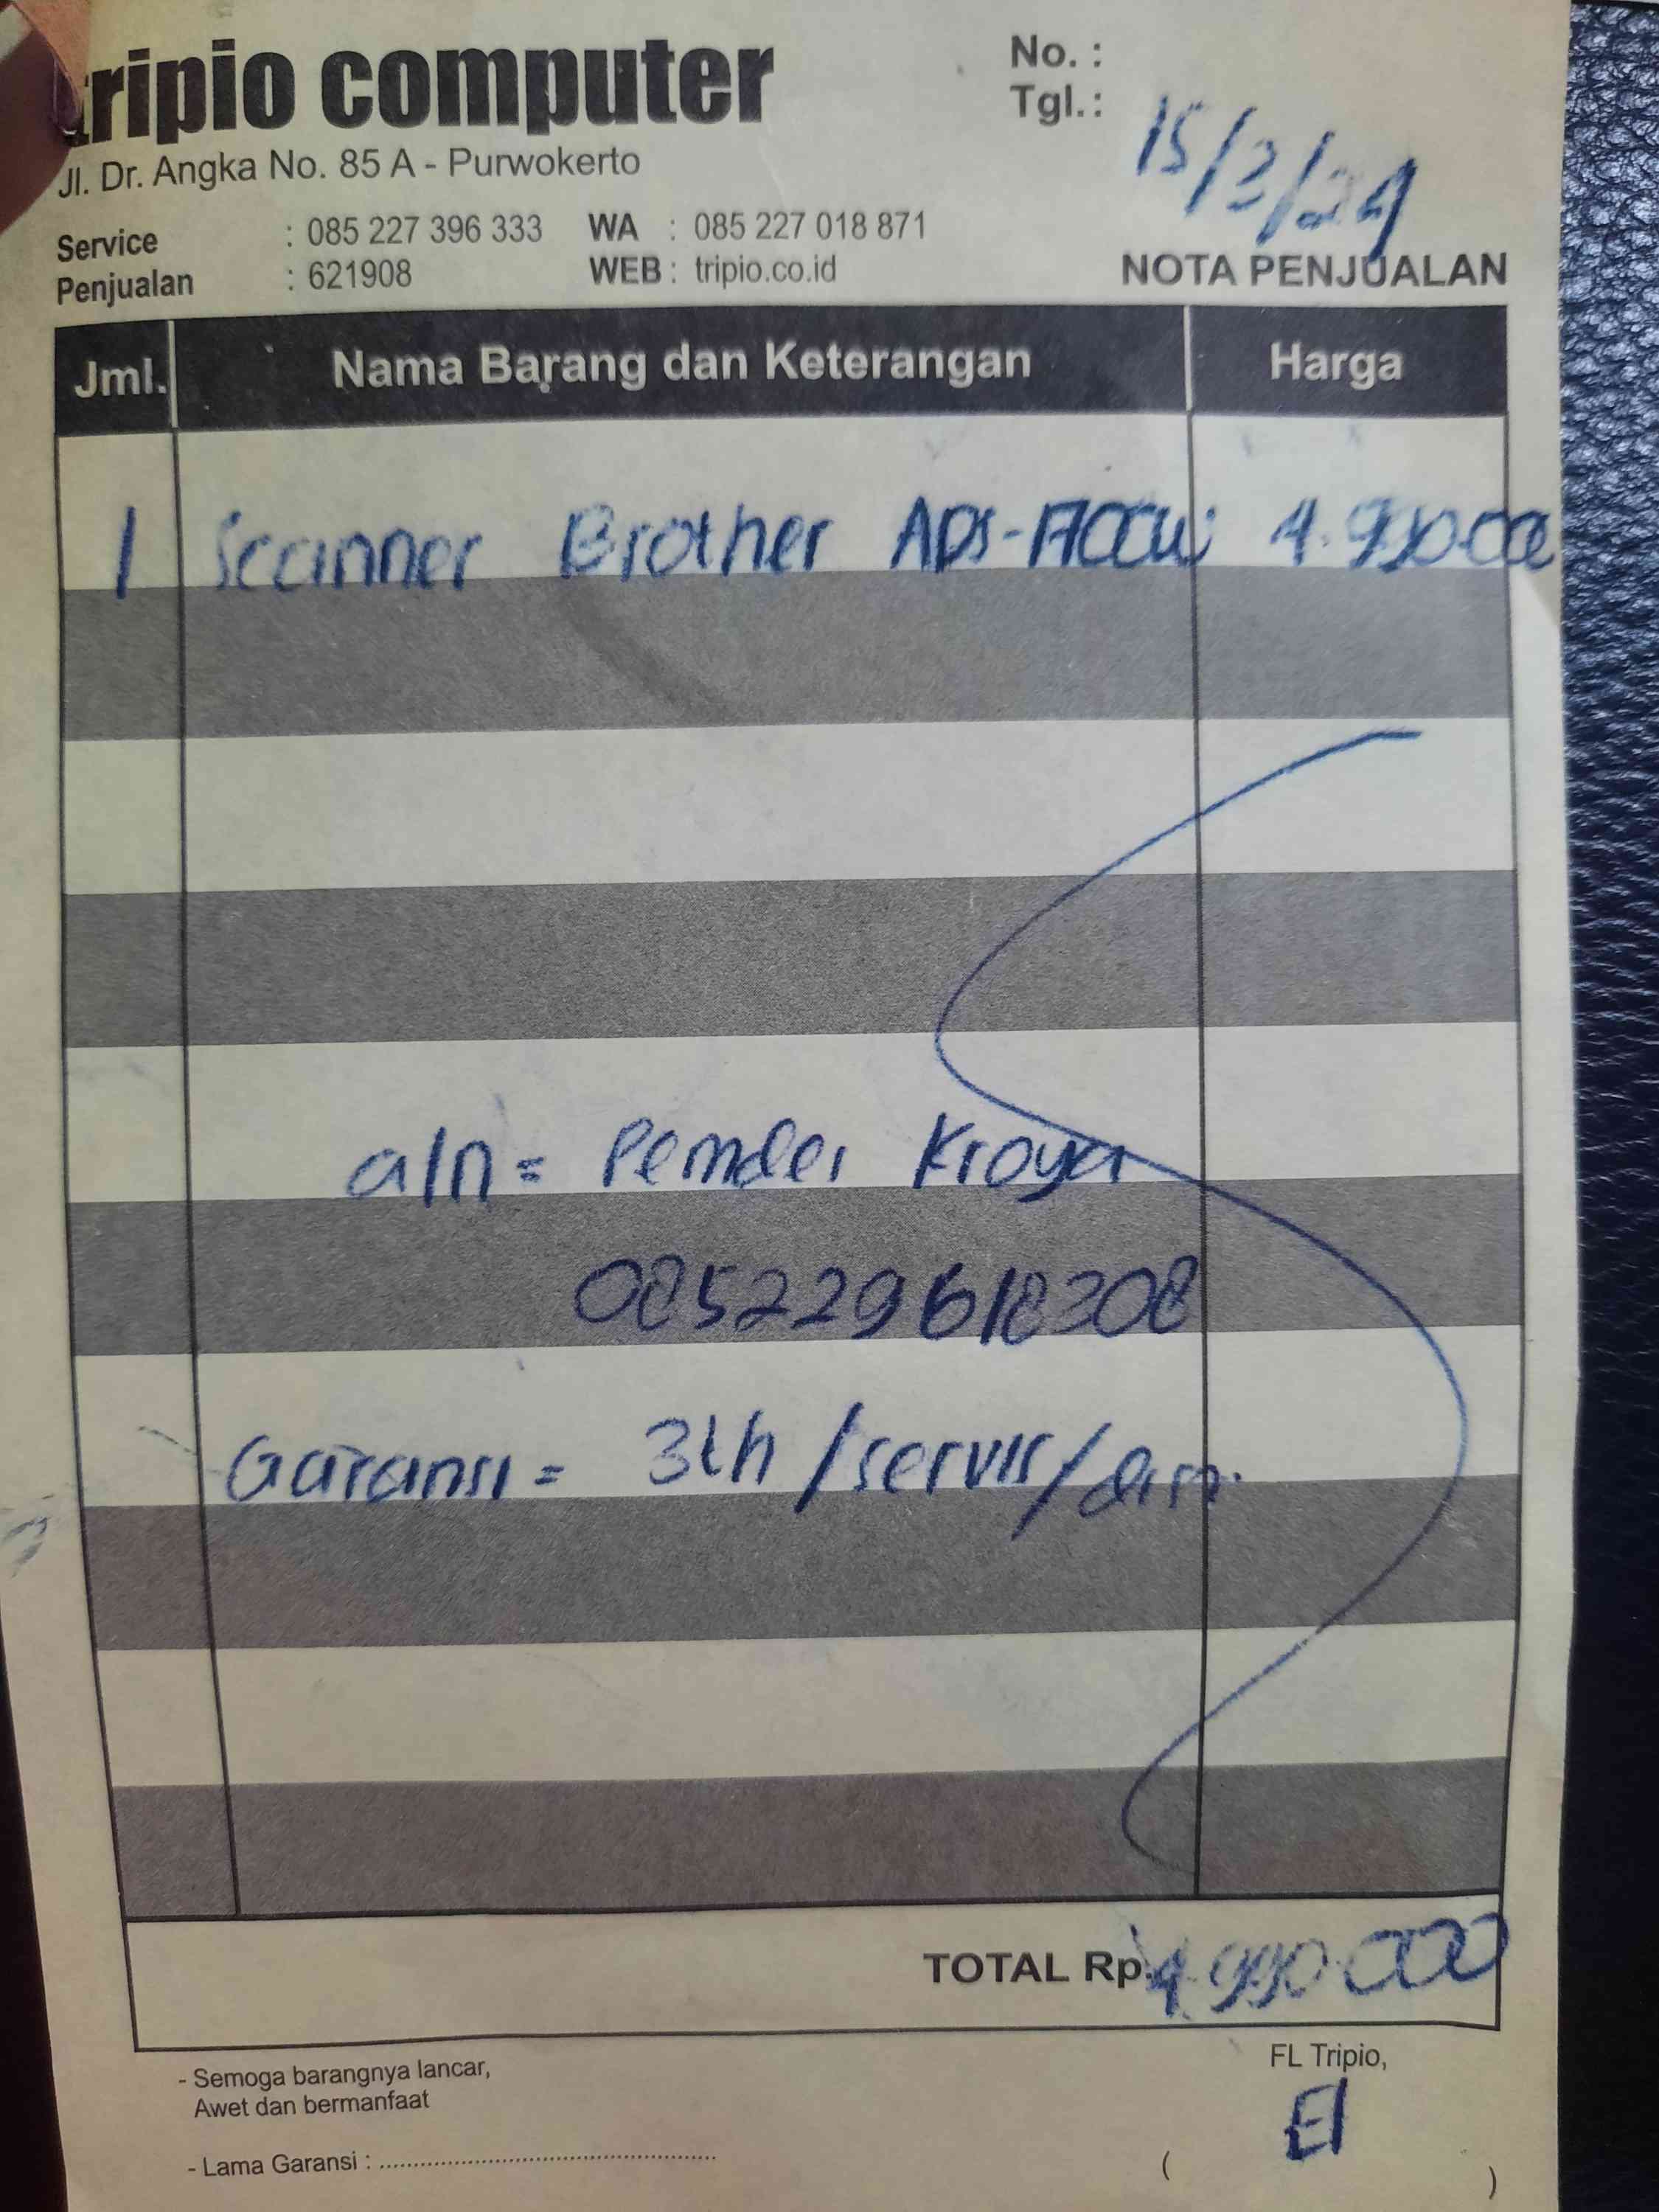 tripio computer
Jl. Dr. Angka No. 85 A - Purwokerto
Service : 085 227 396 333 WA : 085 227 018 871
Penjualan : 621908 WEB : tripio.co.id
No. :
Tgl.: 15/3/24
NOTA PENJUALAN
Jml. Nama Barang dan Keterangan Harga
1 Scanner Brother ADS-1700W 4.990.000
a/n = Pemdes Kroya
085229618308
Garansi = 3th /servis/
TOTAL Rp. 4.990.000
- Semoga barangnya lancar,
Awet dan bermanfaat
- Lama Garansi : ........................................
FL Tripio,
El
( )